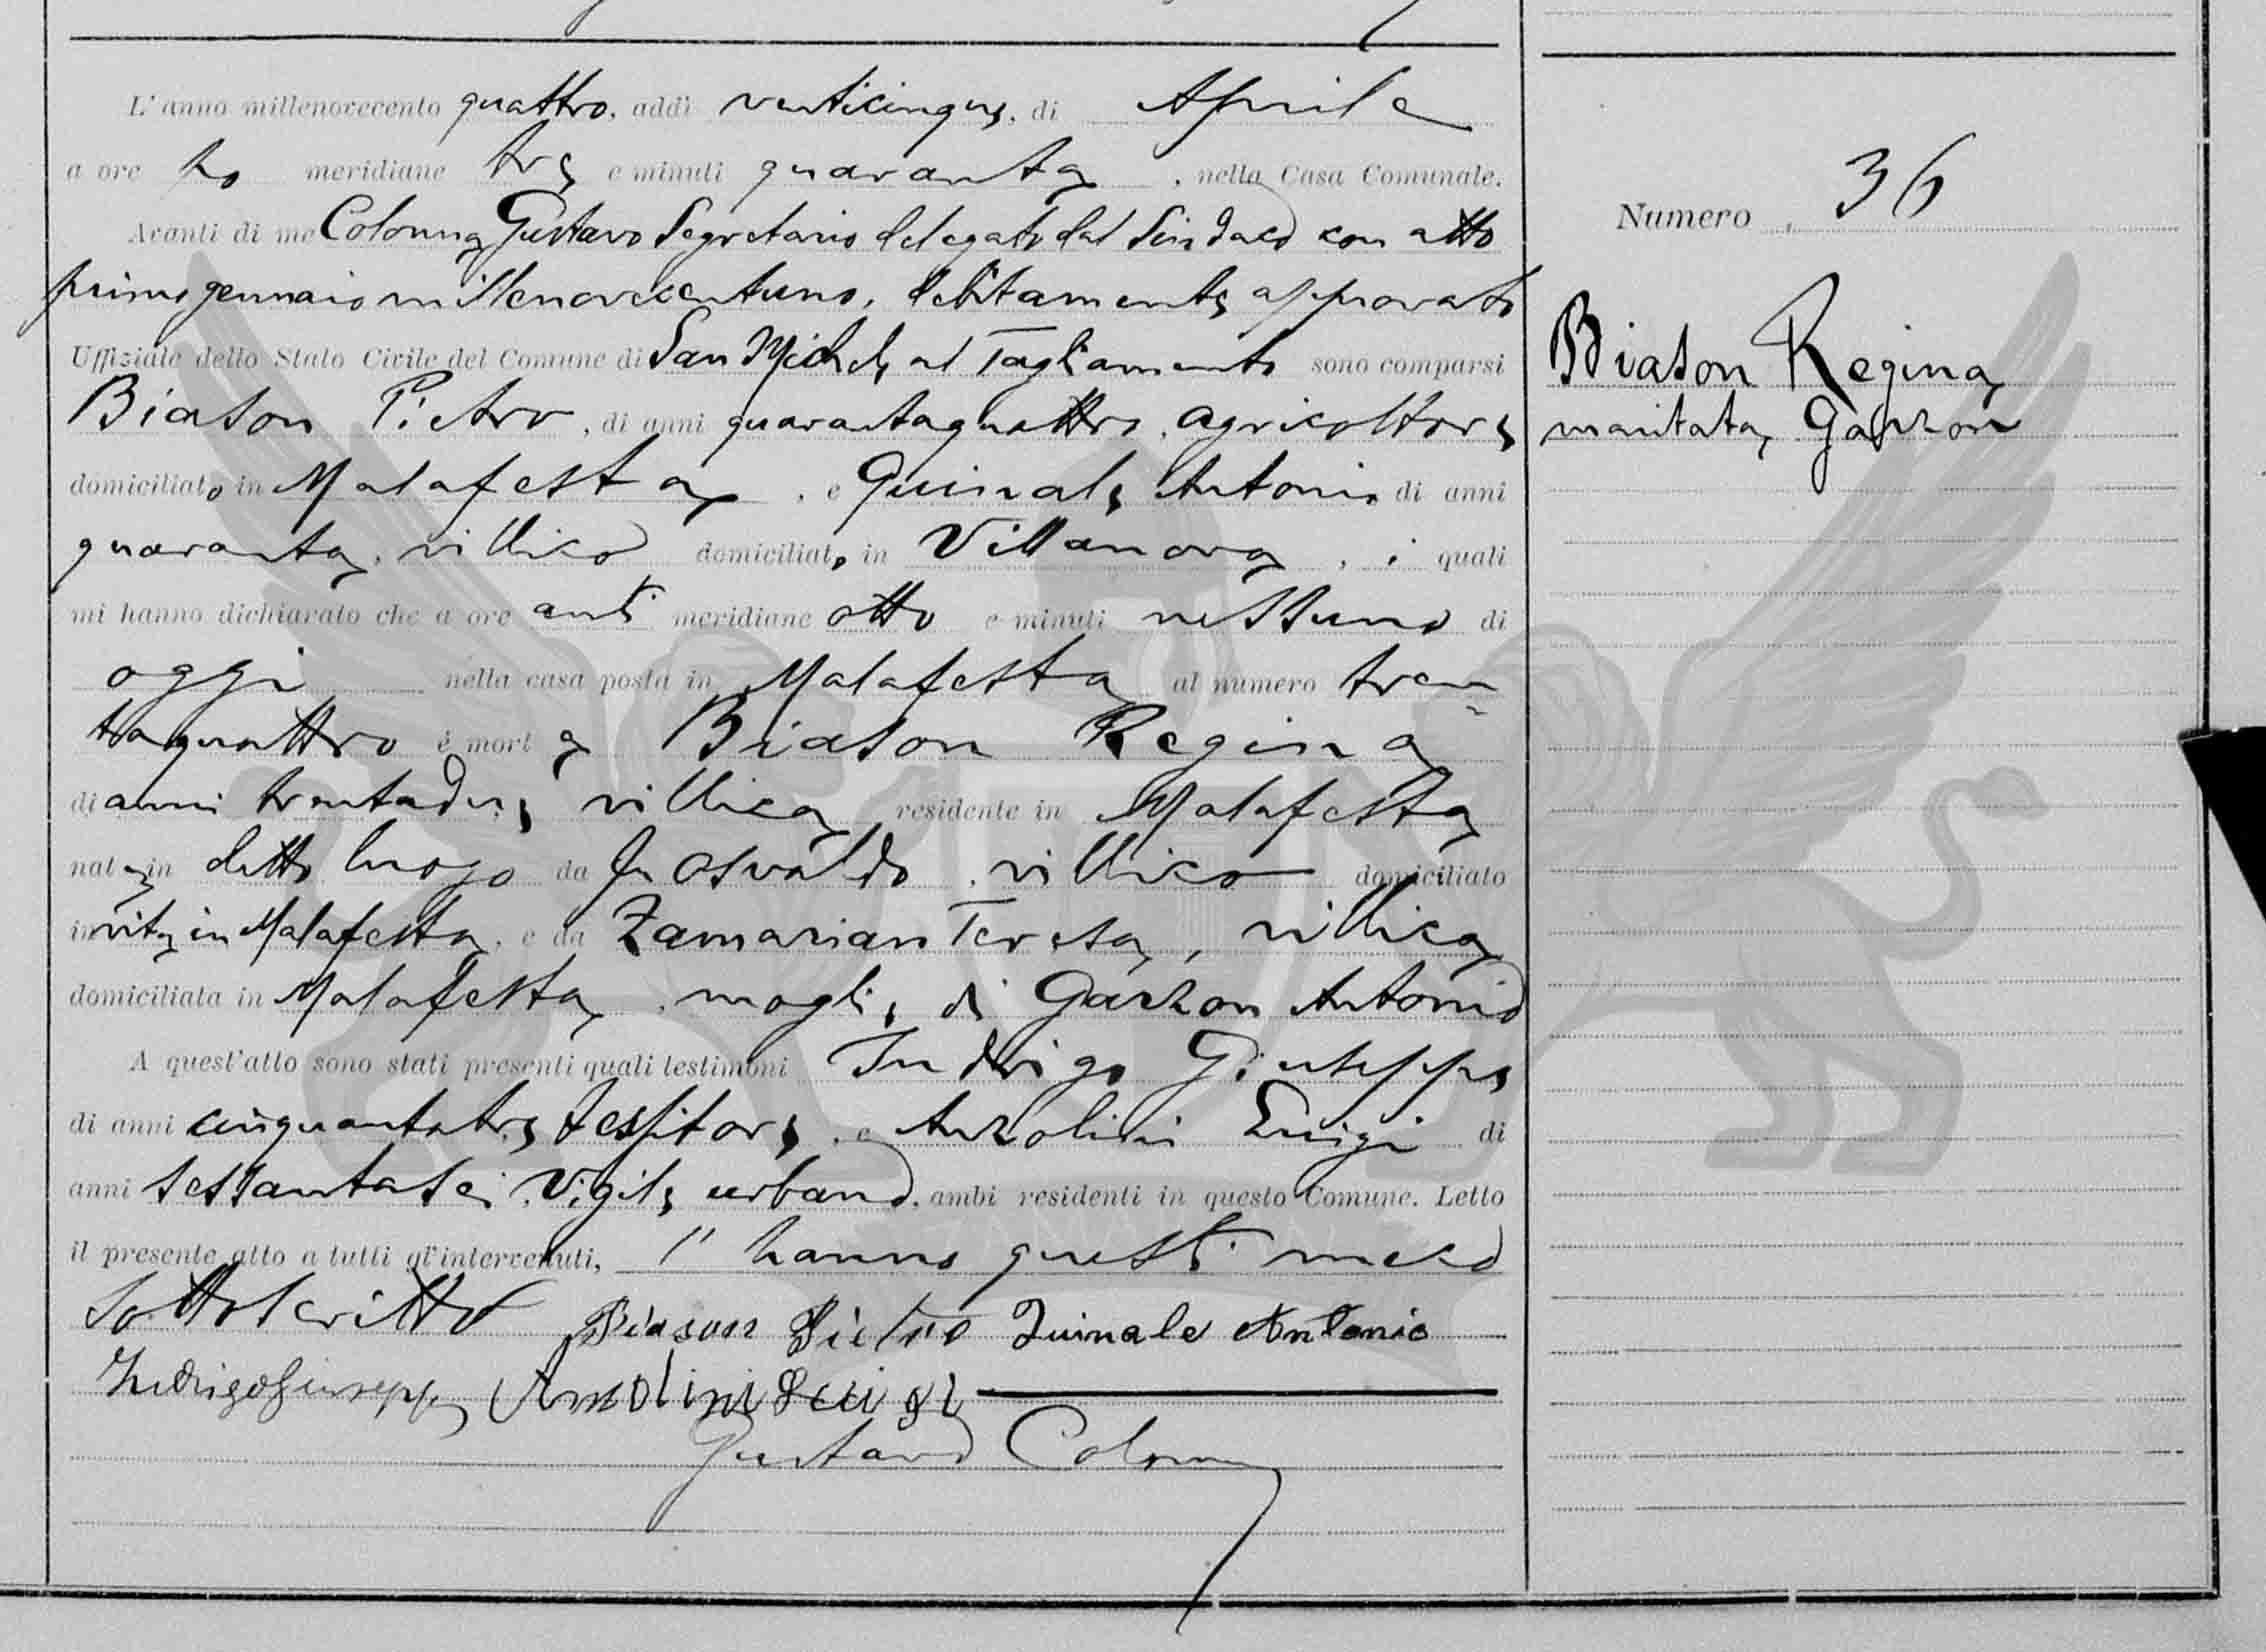 L'anno millenovecento quattro, addi venticinque, di Aprile
a ore po meridiane tre e minuti quaranta, nella Casa Comunale.
Avanti di me Colonna Gustavo Segretario delegato dal Sindaco con atto
primo gennaio millenovecentuno, debitamente approvato
Uffiziale dello Stato Civile del Comune di San Michele al Tagliamento sono comparsi
Biason Pietro, di anni quarantaquattro, agricoltore
domiciliato in Malafesta, e Quinale Antonio di anni
quaranta, villico domiciliato in Villanova, i quali
mi hanno dichiarato che a ore anti meridiane otto e minuti nessuno di
oggi nella casa posta in Malafesta al numero tren
taquattro è morta Biason Regina
di anni trentadue, villica residente in Malafesta
nata in detto luogo da fu Osvaldo, villico domiciliato
in vita in Malafesta, e da Zamarian Teresa, villica
domiciliata in Malafesta, moglie di Garzon Antonio
A quest'atto sono stati presenti quali testimoni Indrigo Giuseppe
di anni cinquantatre, tessitore, e Anzolini Luigi di
anni sessantasei, Vigile urbano, ambi residenti in questo Comune. Letto
il presente atto a tutti gl'intervenuti, l'hanno questi meco
sottoscritto Biason Pietro Quinale Antonio
Indrigo Giuseppe Anzolini Luigi
Gustavo Colonna
Numero 36
Biason Regina
maritata Garzon